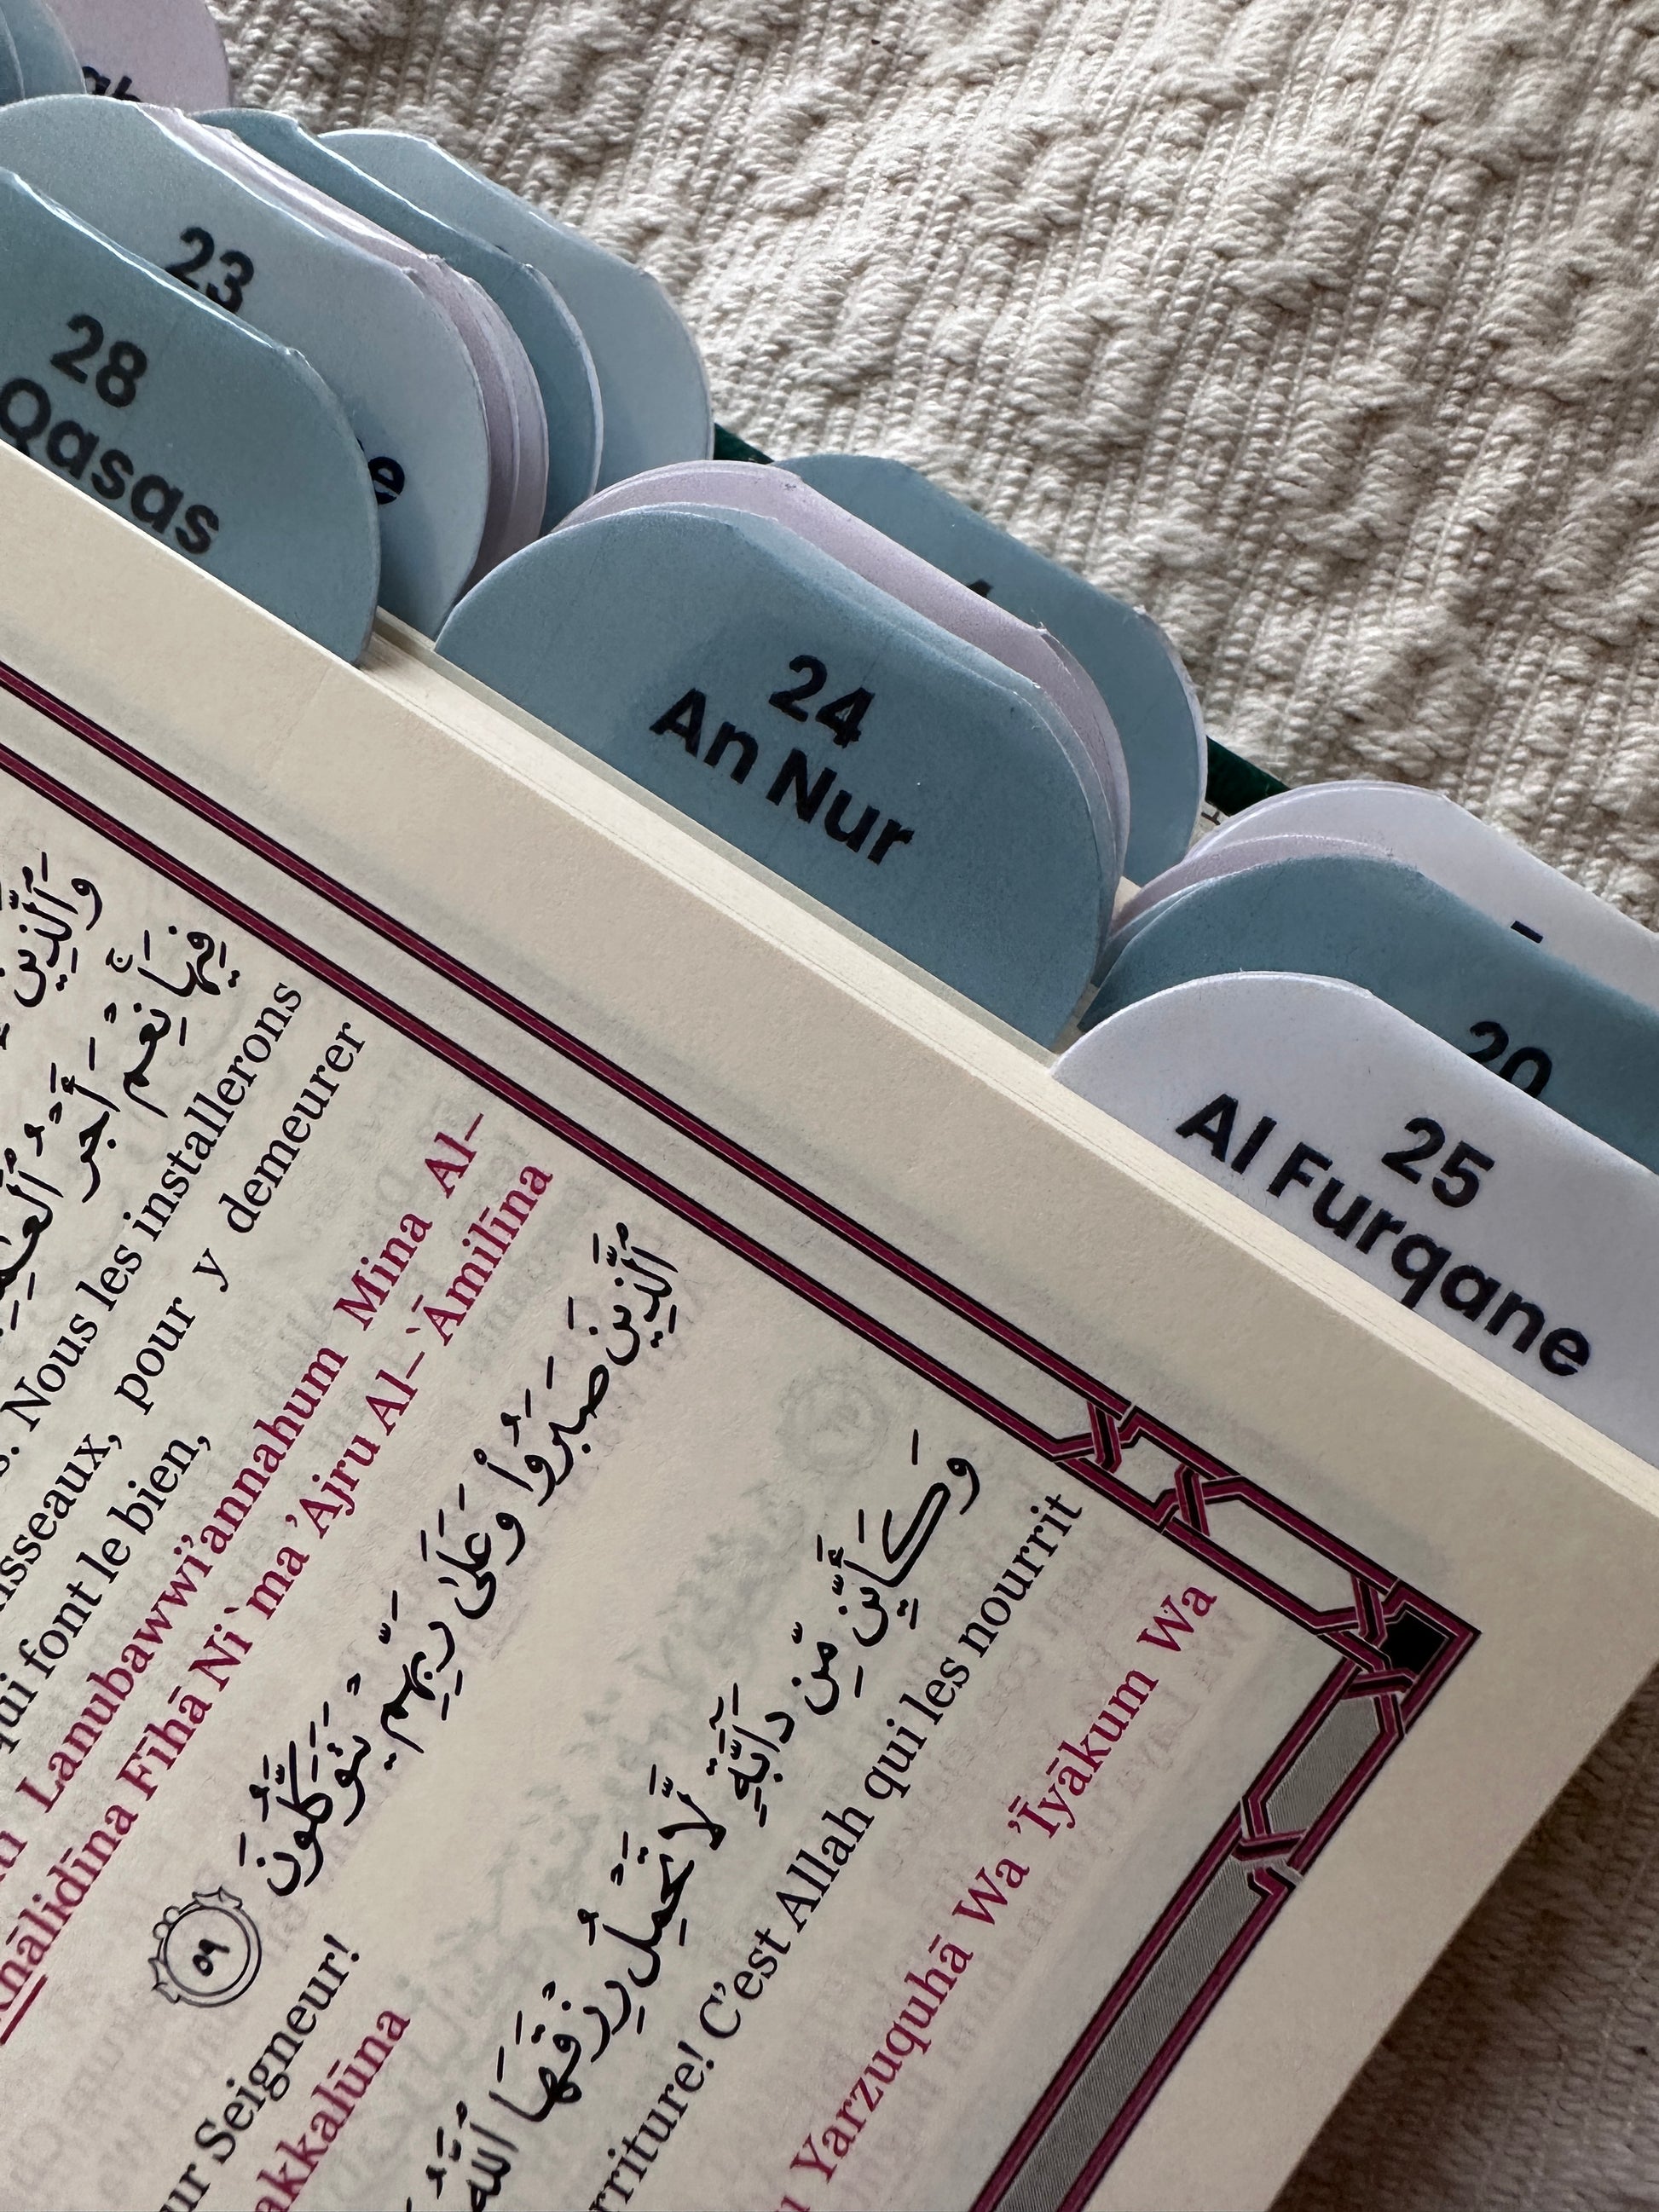 23
28
Qasas
24
An Nur
20
25
Al Furqane
وَٱلَّذِينَ
فِيهَا نِعْمَ أَجْرُ
Nous les installerons
pour y demeurer
qui font le bien,
Lanubawwi'annahum Mina Al-
Fīhā Ni`ma 'Ajru Al-`Āmilīna
ٱلَّذِينَ صَبَرُوا۟ وَعَلَىٰ رَبِّهِمْ يَتَوَكَّلُونَ ٥٩
Seigneur!
وَكَأَيِّن مِّن دَآبَّةٍ لَّا تَحْمِلُ رِزْقَهَا ٱللَّهُ
C'est Allah qui les nourrit
Yarzuquhā Wa 'Īyākum Wa